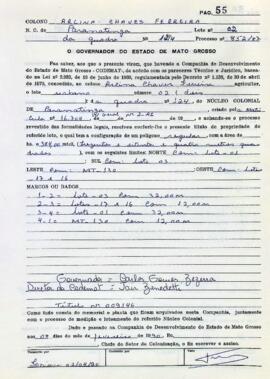 PAG. 55
COLONO ARLINA CHAVES FERREIRA
N. C. de Paranatinga Lote no 02
da quadra no 124 Processo no 852/87
O GOVERNADOR DO ESTADO DE MATO GROSSO
Faz saber, aos que o presente virem, que havendo a Companhia de Desenvolvimento
do Estado de Mato Grosso - CODEMAT, de acordo com os pareceres Técnico e Jurídico, basea-
do na Lei nº
de 1978, concedido, ao colono Arlina Chaves Ferreira
lote urbano número 02 (dois)
da quadra nº 124 do NÚCLEO COLONIAL
DE Paranatinga
revestido das formalidades legais, resolveu conferir-lhe o presente título de propriedade do
referido lote, o qual tem a configuração de um polígono regular com a área de
384,00 (Trezentos e oitenta e quatro metros qua-
drados) com os seguintes limites: NORTE Com Lote - 01
SUL Com Lote - 03
LESTE Com MT-130 OESTE Com Lote -
17 e 16
MARCOS OU DADOS
1-2 = Lote - 03 Com 32,00m
2-3 = Lotes - 17 e 16 Com 12,00m
3-4 = Lote - 01 Com 32,00m
4-1 = MT-130 Com 12,00m
Governador = Carlos Gomes Bezerra
Diretor da Codemat = Jair Benedetti
Título nº 009146
Como tudo consta do memorial e planta que foram arquivados nesta Companhia, juntamente
com o processo de medição e loteamento do referido Núcleo Colonial.
Dado e passado na Companhia de Desenvolvimento do Estado de Mato Grosso
aos de fevereiro de 1990. Eu
Chefe do Setor de Colonização, o fiz escrever e assino.
Visto